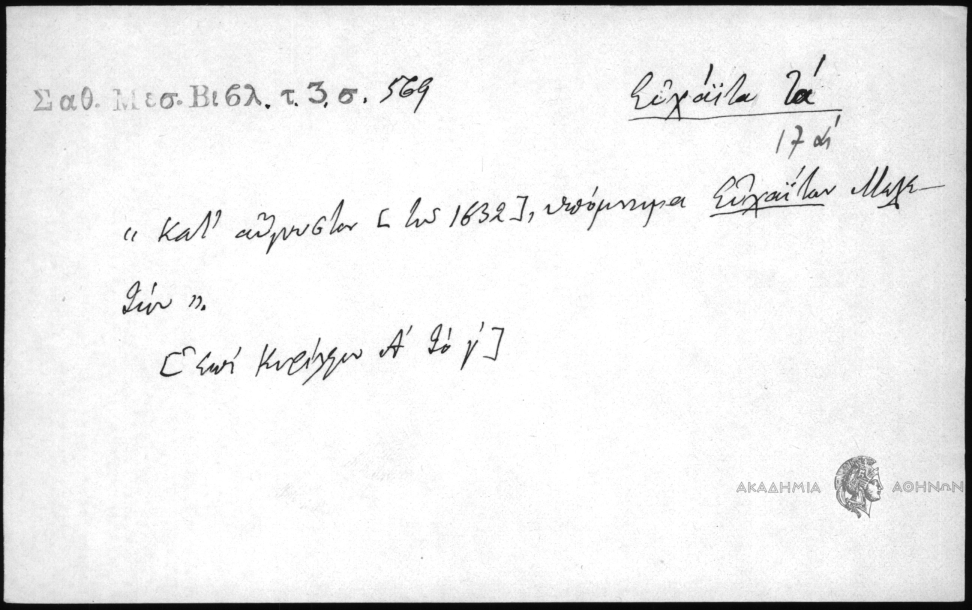 Σαθ. Μεσ. Βιβλ. τ. 3, σ. 569
Εὐχάϊτα τά
17 αἰ
“ Κατ' αὔγουστον [τοῦ 1632], ὑπόμνημα Εὐχαΐτων Μελε-
τίου ”.
[Ἐπί Κυρίλλου Α' τό γ']
ΑΚΑΔΗΜΙΑ ΑΘΗΝΩΝ